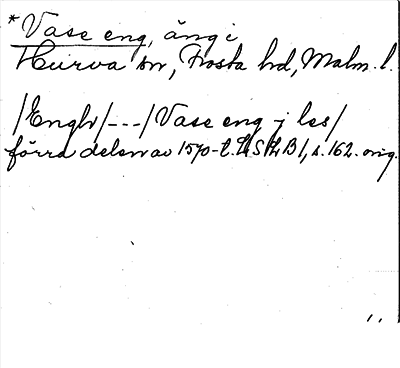 *Vase eng, äng i
Hurva sn, Frosta hd, Malm. l.
/Engh/---/Vase eng j les/
förra delen av 1570-t. LSLB1, s. 162. orig.